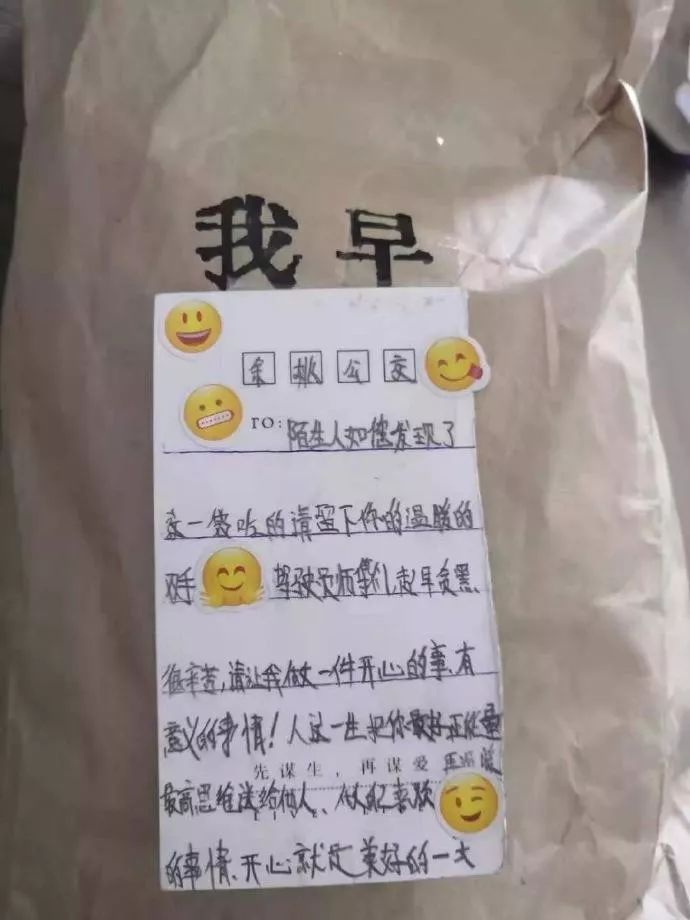 我早
余姚公交
TO: 陌生人如您发现了
这一袋吃的请留下你的温暖的
双手 驾驶员师傅们起早贪黑、
很辛苦,请让我做一件开心的事、有
意义的事情!人这一生把你最好正能量
先谋生,再谋爱
最高思维送给他人、做
的事情、开心就是美好的一天